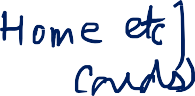 Home etc]
Cards)